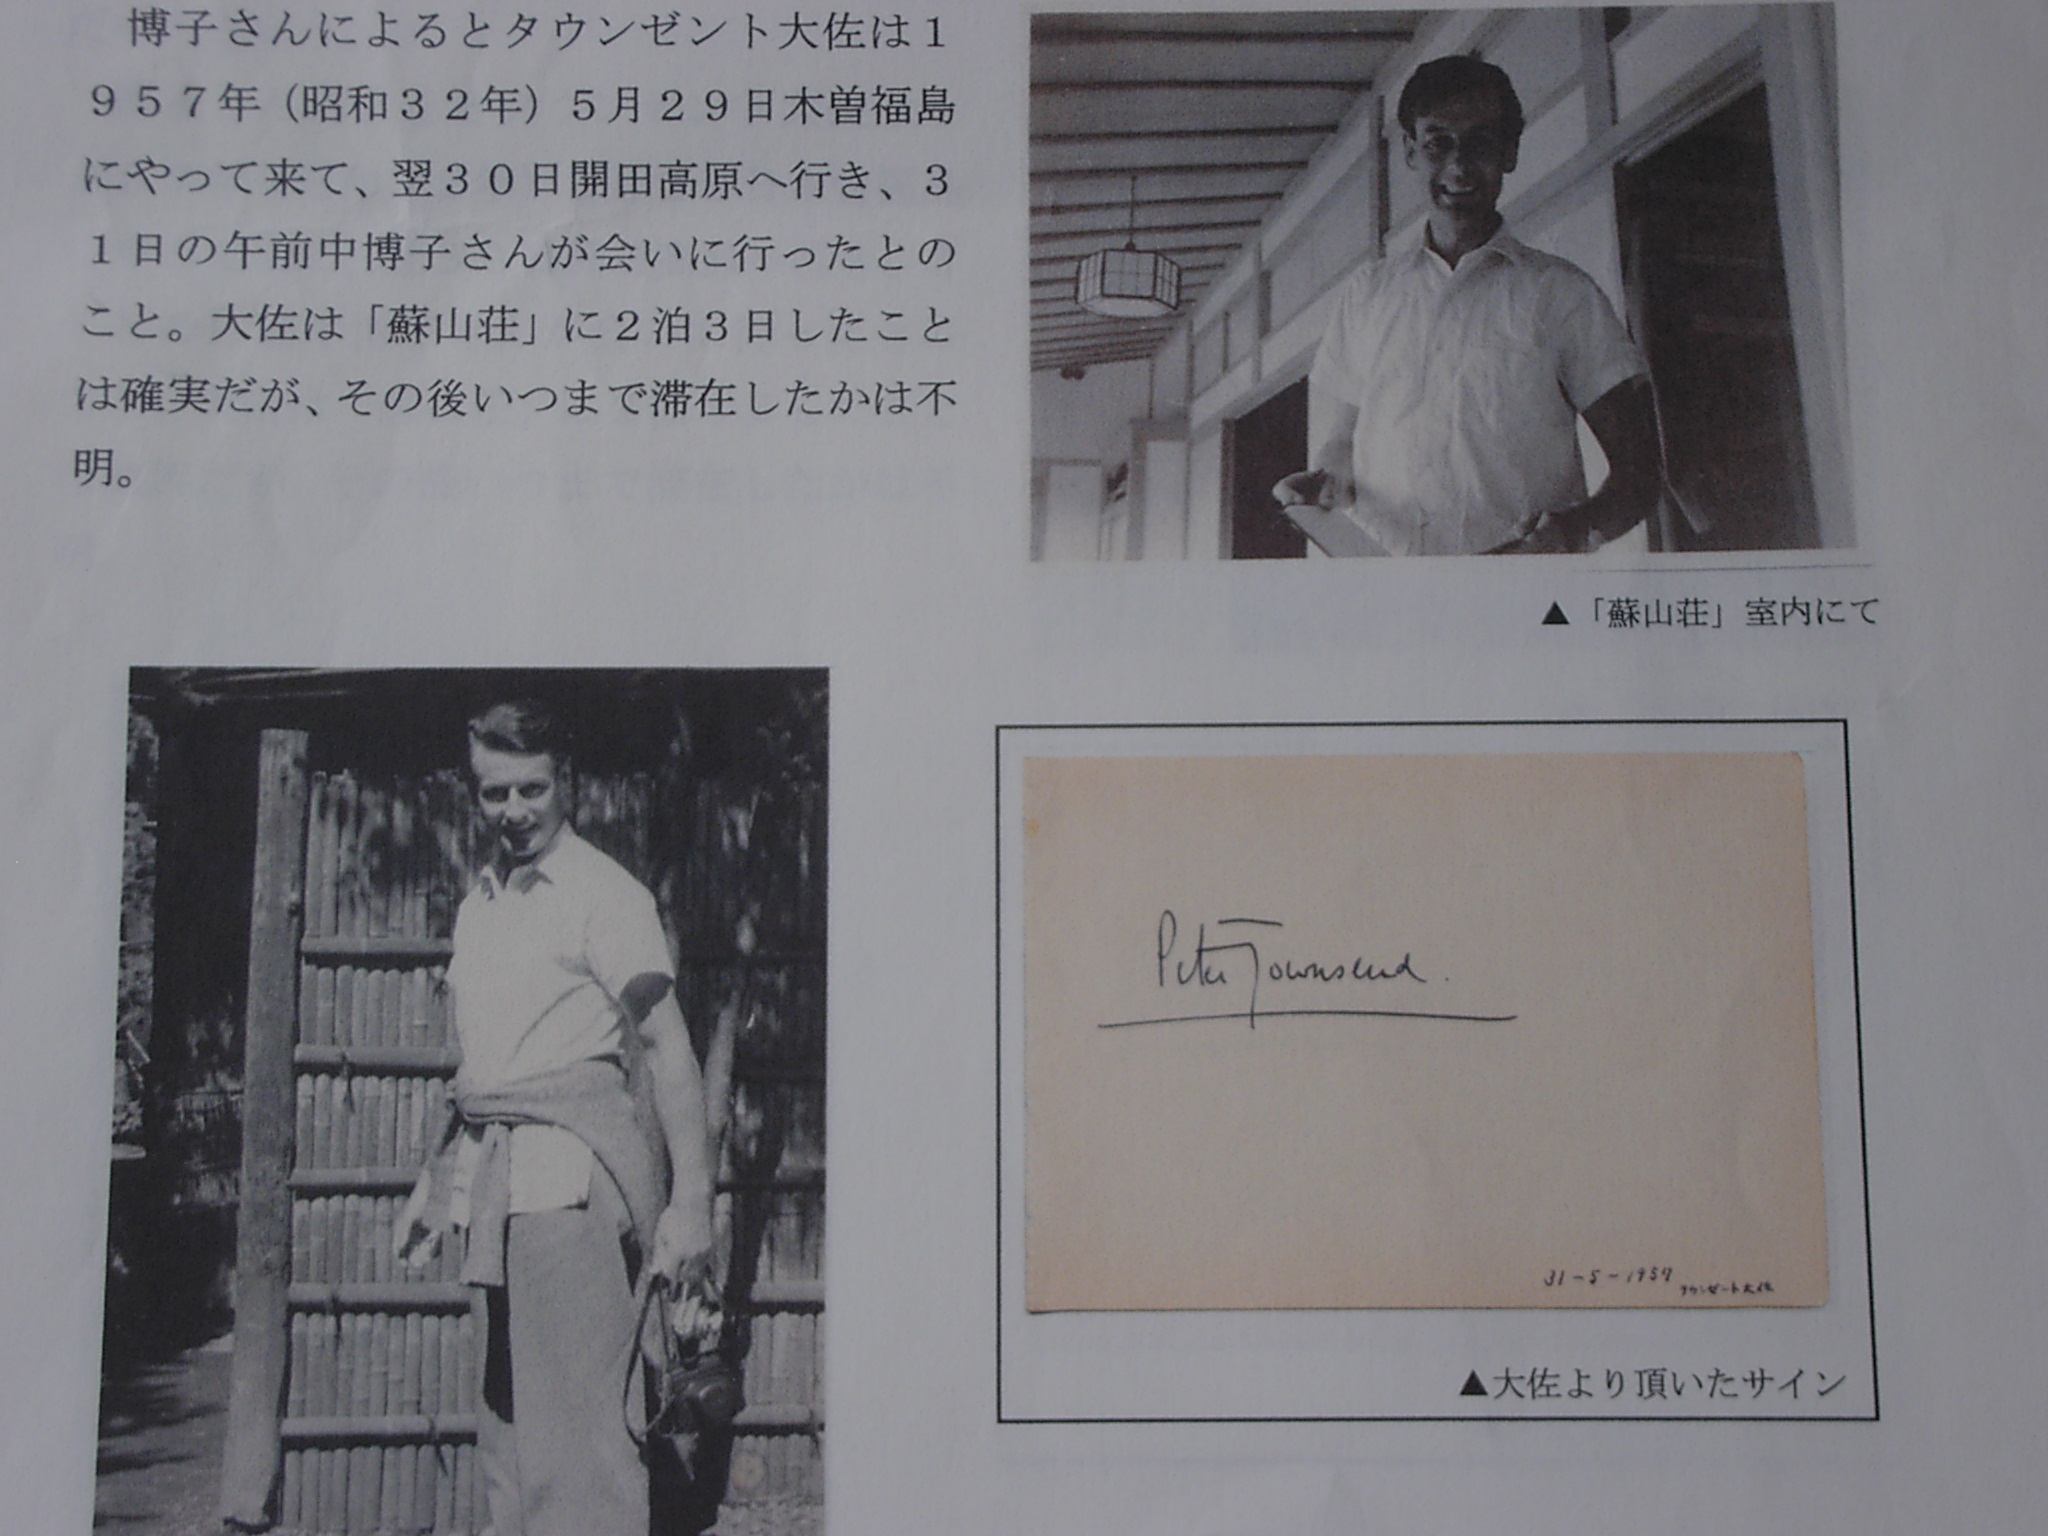 博子さんによるとタウンゼント大佐は１
９５７年（昭和３２年）５月２９日木曽福島
にやって来て、翌３０日開田高原へ行き、３
１日の午前中博子さんが会いに行ったとの
こと。大佐は「蘇山荘」に２泊３日したこと
は確実だが、その後いつまで滞在したかは不
明。
▲「蘇山荘」室内にて
Peter Townsend.
31-5-1957
タウンゼート大佐
▲大佐より頂いたサイン